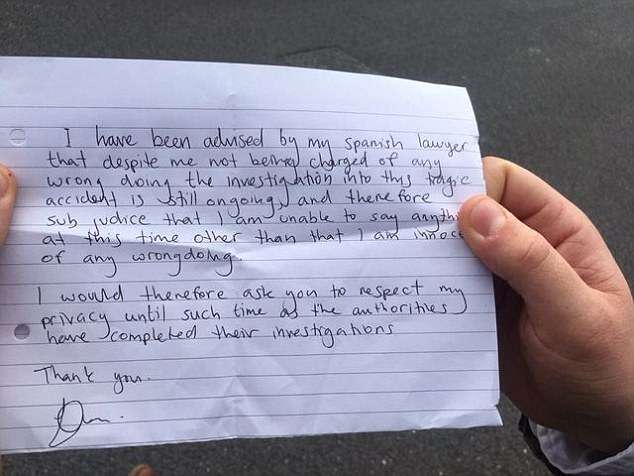 I have been advised by my Spanish lawyer
that despite me not being charged of any
wrong doing the investigation into this tragic
accident is still ongoing, and therefore
sub judice that I am unable to say anythi
at this time other than that I am innoce
of any wrongdoing.
I would therefore ask you to respect my
privacy until such time as the authorities
have completed their investigations
Thank you.